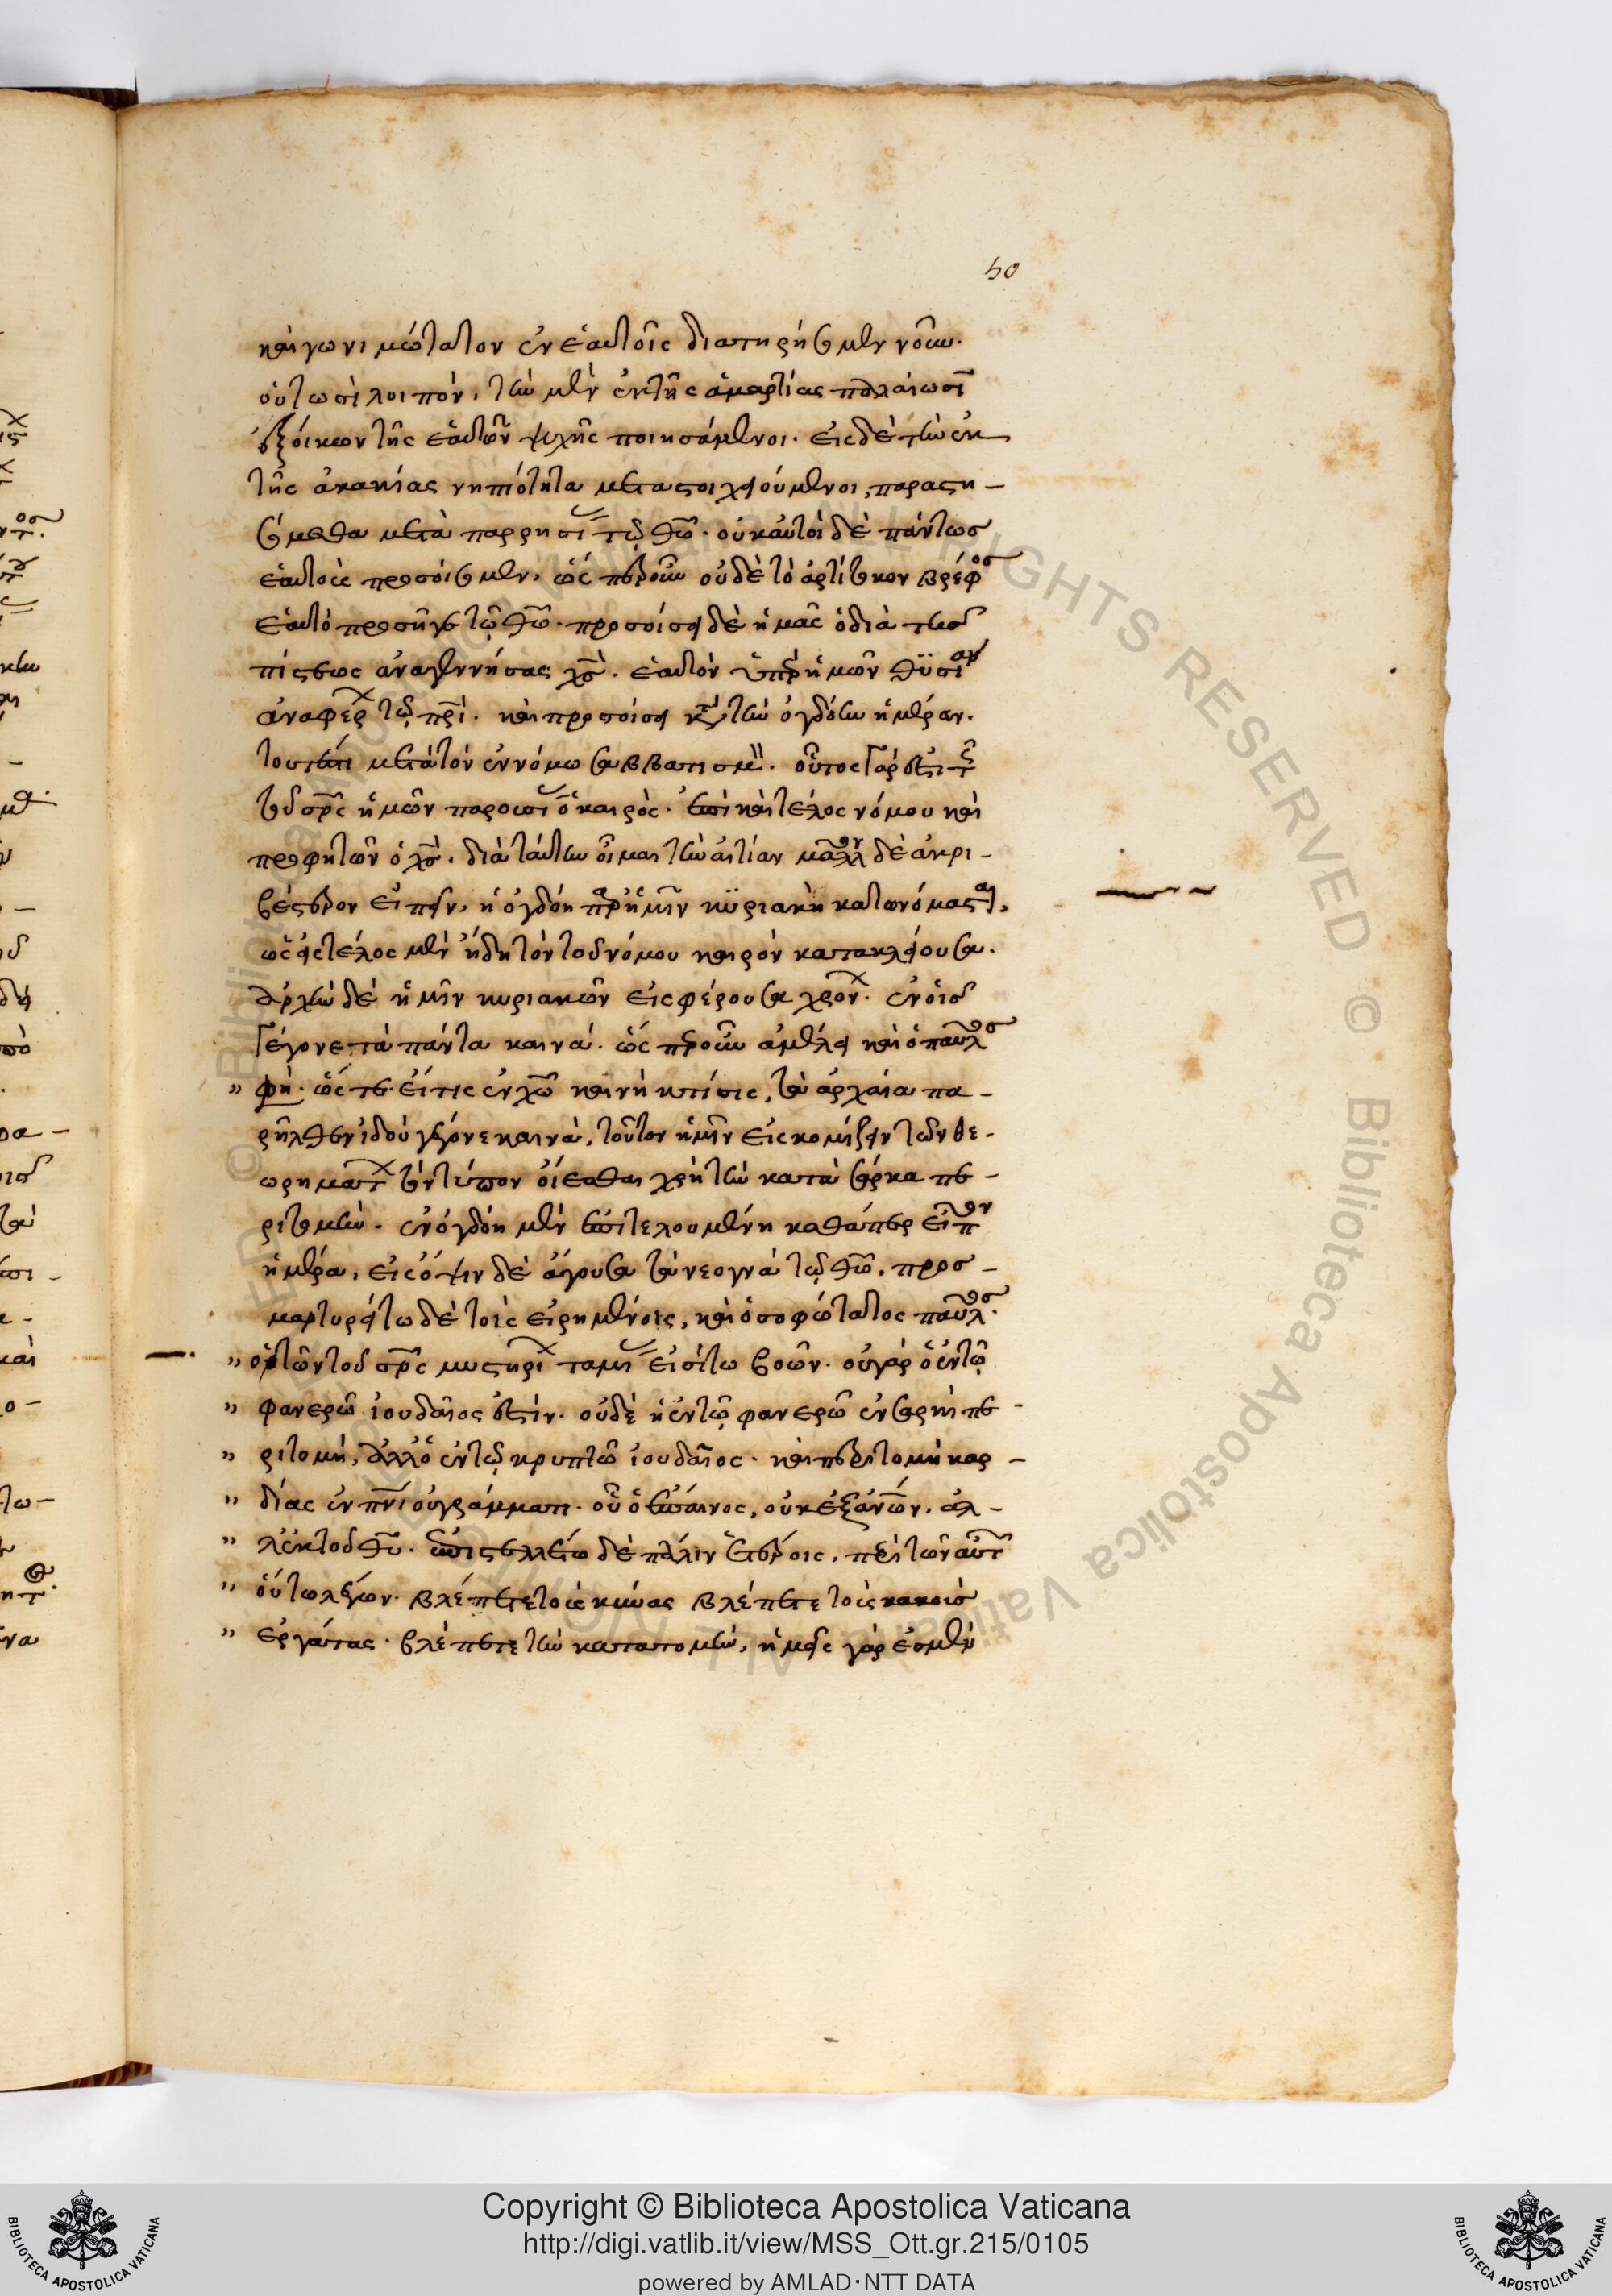 50
καὶ γονιμώτατον ἐν ἑαυτοῖς διατηρήσωμεν νοῦν.
οὑτωσὶ λοιπὸν, τὴν μὲν ἐκ τῆς ἁμαρτίας παλαίωσϊ
ἔξοικον τῆς ἑαυτῶν ψυχῆς ποιησάμενοι. εἰς δὲ τὴν ἐκ
τῆς ἀκακίας νηπιότητα μεταστοιχειούμενοι, παραστη-
σόμεθα μετὰ παρρησί τῷ θῶ. οὐκ αὐτοὶ δὲ πάντως
ἑαυτοὺς προσοίσομεν, ὥσπερ οὖν οὐδὲ τὸ ἀρτίτοκον βρέφος
ἑαυτὸ προσῆγε τῷ θῶ. προσοίσει δὲ ἡμᾶς ὁ διὰ τῆς
πίστεως ἀναγεννήσας χς. ἑαυτὸν ὑπὲρ ἡμῶν θϋσίαν
ἀναφέρ τῷ πρὶ. καὶ προσοίσει κατὰ τὴν ὀγδόην ἡμέραν.
τουτέστι μετὰ τὸν ἐν νόμω σαββατισμ. οὗτος γάρ ἐστι τ
τοῦ σρς ἡμῶν παρουσί ὁ καιρὸς. ἐπεὶ καὶ τέλος νόμου καὶ
προφητῶν ὁ χς. διὰ ταύτην οἶμαι τὴν αἰτίαν μᾶλλον δὲ ἀκρι-
βέστερον εἰπεῖν, ἡ ὀγδόη παρ' ἡμῖν κϋριακὴ κατωνόμασται,
ὡς εἰς τέλος μὲν ἤδη τὸν τοῦ νόμου καιρὸν κατακλείουσα.
ἀρχὴν δὲ ἡμῖν κυριακῶν εἰσφέρουσα χρον. ἐν οἷς
γέγονε τὰ πάντα καινά. ὥσπερ οὖν ἀμέλει καὶ ὁ παῦλος
" φη. ὥστε εἴ τις ἐν χῶ καινὴ κτίσις, τὰ ἀρχαῖα πα-
ρῆλθεν ἰδοὺ γέγονε καινὰ, τοῦτον ἡμῖν εἰσκομίζειν τῶν θε-
ωρηματ τὸν τύπον οἴεσθαι χρὴ τὴν κατὰ σάρκα πε-
ριτομὴν. ἐν ὀγδόη μὲν ἐπιτελουμένη καθάπερ εἶπον
ἡμέρα, εἰς ὄψιν δὲ ἄγουσα τὰ νεογνὰ τῷ θῶ. προσ-
μαρτυρείτω δὲ τοῖς εἰρημένοις, καὶ ὁ σοφώτατος παῦλος.
" ὁ τῶν τοῦ σρς μυστηρι ταμί εἰσίτω βοῶν. οὐ γὰρ ὁ ἐν τῷ
" φανερῶ ἰουδαῖος ἐστίν. οὐδὲ ἡ ἐν τῷ φανερῶ ἐν σαρκὶ πε-
" ριτομή, ἀλλ' ὁ ἐν τῷ κρυπτῶ ἰουδαῖος. καὶ περιτομὴ καρ-
" δίας ἐν πνὶ οὐ γράμματι. οὗ ὁ ἔπαινος, οὐκ ἐξ ἀνῶν, ἀλ-
" λ' ἐκ τοῦ θυ. ἐπιστελλέτω δὲ πάλιν ἑτέροις, περὶ τῶν αὐτ
" οὕτω λέγων. βλέπετε τοὺς κύνας βλέπετε τοὺς κακοὺς
" ἐργάτας. βλέπετε τὴν κατατομὴν, ἡμεῖς γάρ ἐσμὲν
Copyright © Biblioteca Apostolica Vaticana
http://digi.vatlib.it/view/MSS_Ott.gr.215/0105
powered by AMLAD·NTT DATA
BIBLIOTECA APOSTOLICA VATICANA
BIBLIOTECA APOSTOLICA VATICANA